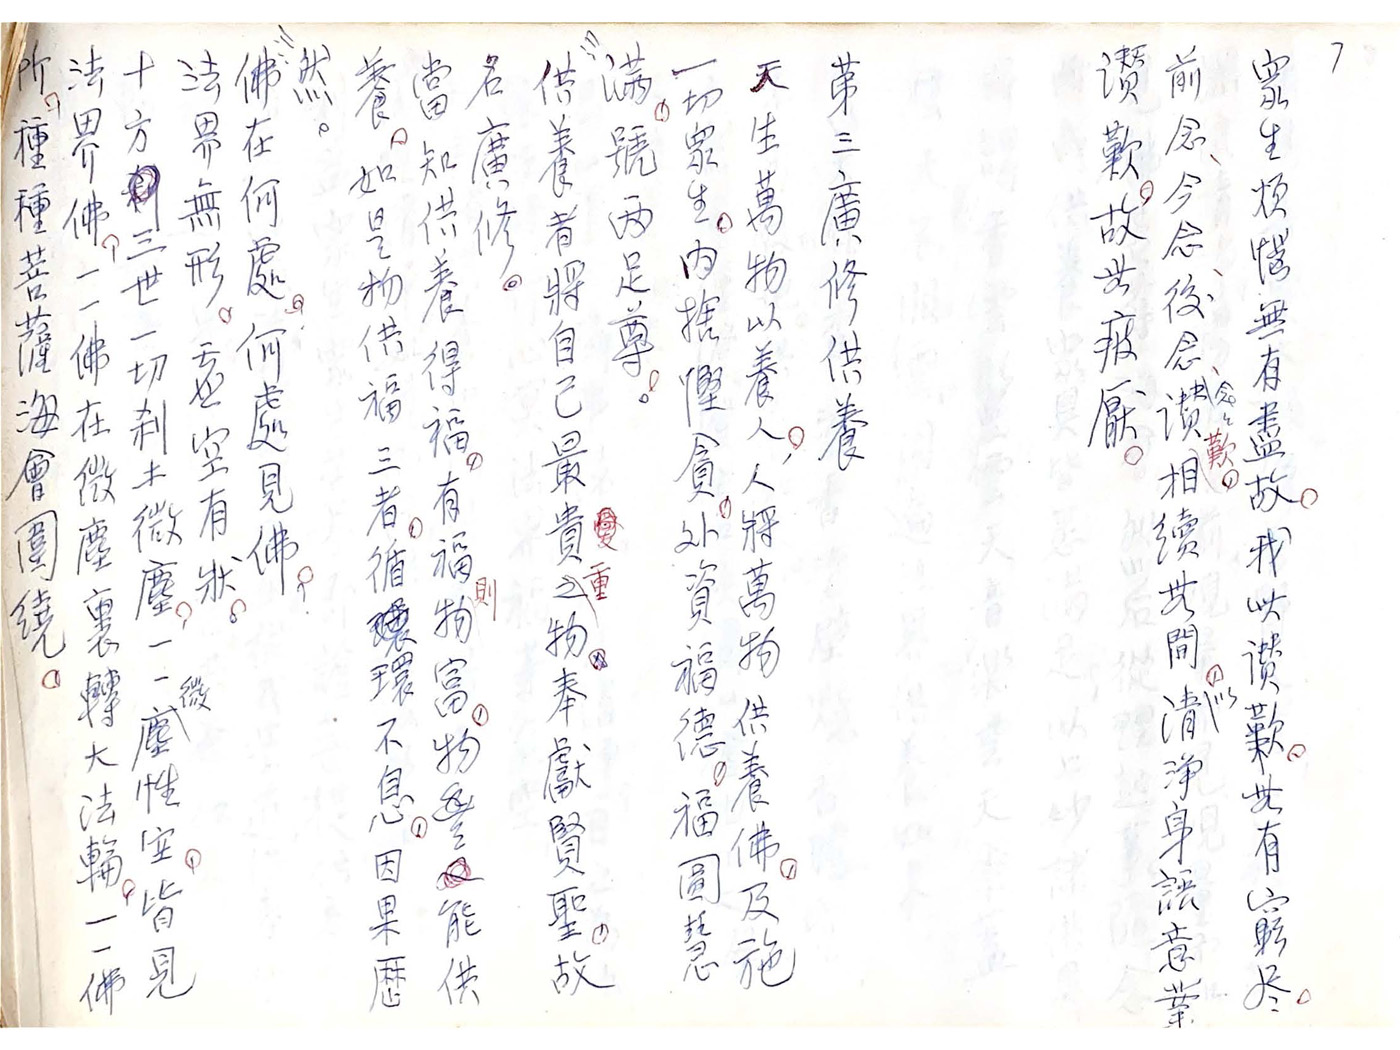 7
眾生煩惱無有盡故，我此讚歎無有窮盡。
前念、今念、後念、念念讚歎相續無間，以清淨身語意業
讚歎，故無疲厭。
第三廣修供養
天生萬物以養人，人將萬物供養佛，及施
一切眾生。內捨慳貪，外資福德，福圓慧
滿，號兩足尊。
供養者將自己最貴重愛之物，奉獻賢聖，故
名廣修。
當知供養得福，有福則物富，物豐能供
養。如是物供福三者，循環不息，因果歷
然。
佛在何處？何處見佛？
法界無形，虛空有狀。
十方三世一切剎土微塵，一一微塵性空，皆見
法界佛，一一佛在微塵裏轉大法輪，一一佛
所，種種菩薩海會圍繞。